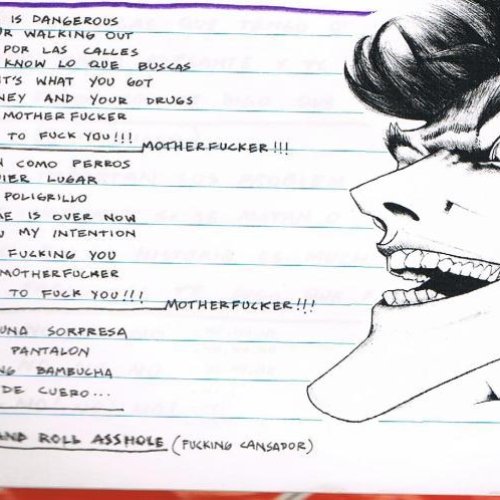 IS DANGEROUS
R WALKING OUT
POR LAS CALLES
KNOW LO QUE BUSCAS
IT'S WHAT YOU GOT
NEY AND YOUR DRUGS
MOTHER FUCKER
TO FUCK YOU!!! MOTHERFUCKER!!!
N COMO PERROS
IER LUGAR
POLIGRILLO
ME IS OVER NOW
U MY INTENTION
FUCKING YOU
MOTHERFUCKER
TO FUCK YOU!!! MOTHERFUCKER!!!
UNA SORPRESA
PANTALON
NG BAMBUCHA
DE CUERO...
AND ROLL ASSHOLE (FUCKING CANSADOR)